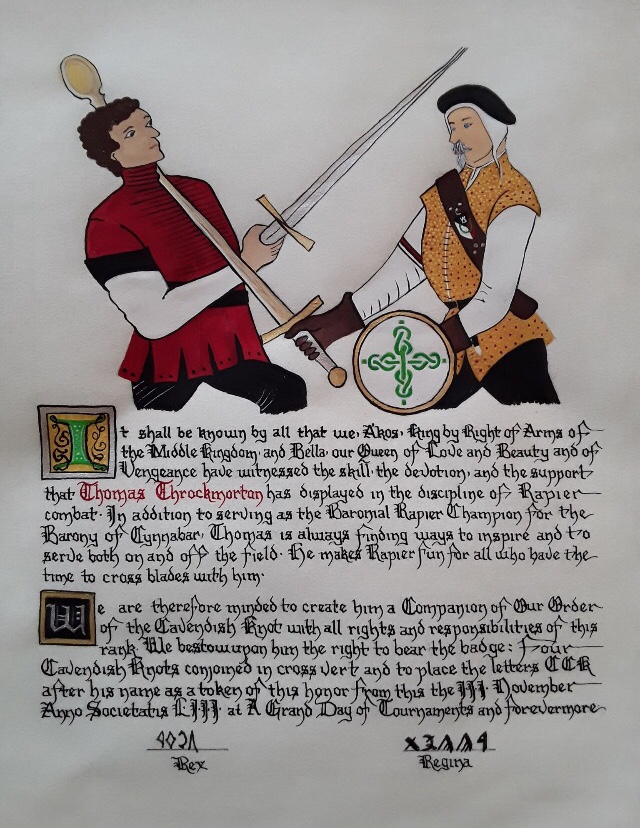 It shall be known by all that we, Akos, King by Right of Arms of
the Middle Kingdom, and Bella, our Queen of Love and Beauty and of
Vengeance have witnessed the skill, the devotion, and the support
that Thomas Throckmorton has displayed in the discipline of Rapier
combat. In addition to serving as the Baronial Rapier Champion for the
Barony of Cynnabar, Thomas is always finding ways to inspire and to
serve both on and off the field. He makes Rapier fun for all who have the
time to cross blades with him.
We are therefore minded to create him a Companion of Our Order
of the Cavendish Knot with all rights and responsibilities of this
rank. We bestow upon him the right to bear the badge: Four
Cavendish Knots conjoined in cross vert and to place the letters CCK
after his name as a token of this honor from this the III November
Anno Societatis LIII at A Grand Day of Tournaments and forevermore
Rex
Regina